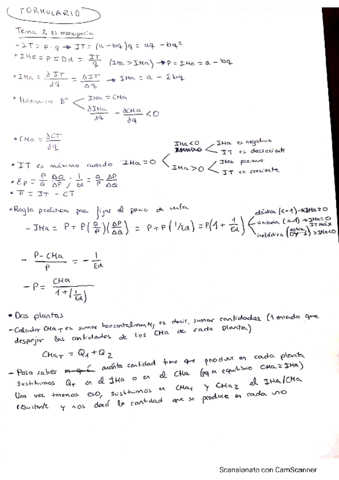 FORMULARIO
Tema 2. El monopolio
• IT = p · q → IT = (a - bq) q = aq - bq²
• IMe = P = Dd = IT/q (IMe > IMa) → P = IMe = a - bq
• IMa = ∂IT/∂q = ΔIT/Δq → IMa = a - 2bq
• Maximizar Bº IMa = CMa
∂IMa/∂q - ∂CMa/∂q < 0
• CMa = ∂CT/∂q
• IT es máximo cuando IMa = 0
IMa < 0 IMa es negativo
IT es decreciente
IMa > 0 IMa positivo
IT es creciente
• π = IT - CT
• Regla práctica para fijar el precio de venta
- IMa = P + P (Q/P)(ΔP/ΔQ) = P + P (1/Ed) = P (1 + 1/Ed)
- P - CMa / P = - 1/Ed
- P = CMa / 1 + (1/Ed)
• Dos plantas
- Calcular CMaT es sumar horizontalmente, es decir, sumar cantidades (teniendo que
despejar las cantidades de los CMa de cada planta)
CMaT = Q1 + Q2
- Para saber cuánta cantidad tiene que producir en cada planta
sustituimos QT en el IMa o en el CMa (pq en equilibrio CMa = IMa)
Una vez tenemos eso, sustituimos en CMa1 y CMa2 el IMa/CMa
resultante y nos dará la cantidad que se produce en cada uno
Scansionato con CamScanner